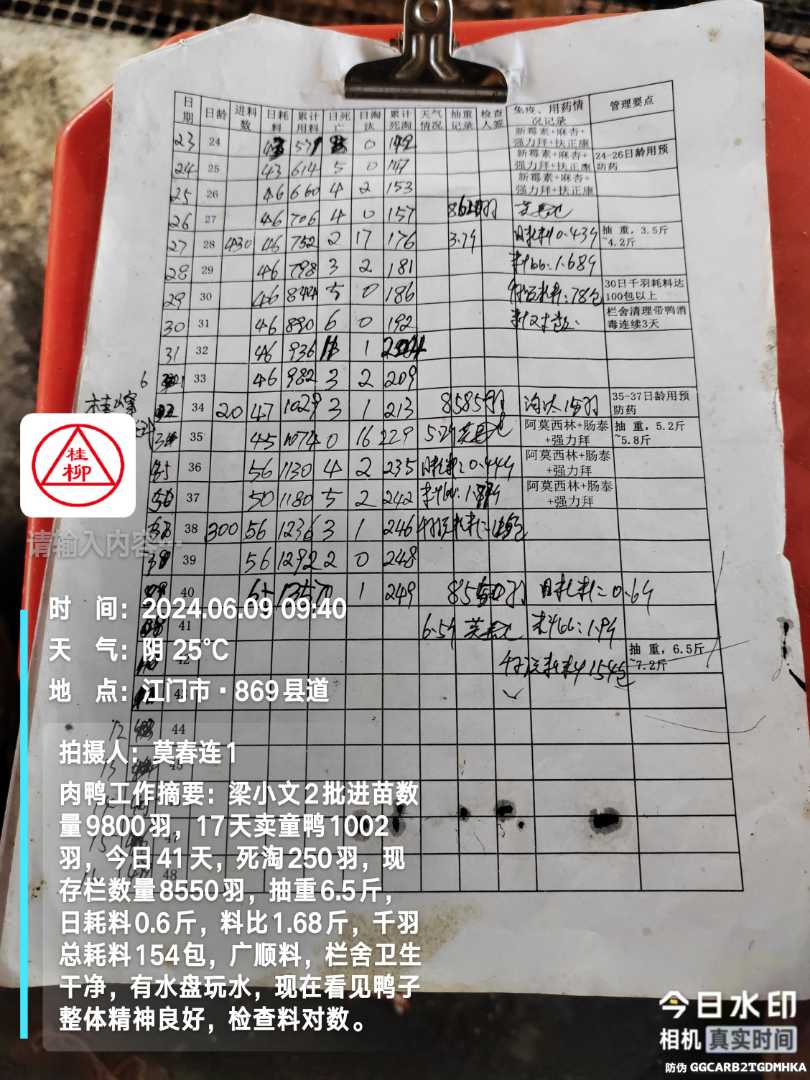 日期 日龄 进料数 日耗料 累计用料 日死亡 日淘汰 累计死淘 天气情况 抽重记录 检查人签 免疫、用药情况记录 管理要点
23 24 0 新霉素+麻杏+强力拜+扶正康
24 25 43 614 5 0 147 新霉素+麻杏+强力拜+扶正康 24-26日龄用预防药
25 26 46 660 4 2 153 新霉素+麻杏+强力拜+扶正康
26 27 46 706 4 0 157
27 28 430 46 752 2 17 176 3.7斤 日耗料0.43斤 抽重,3.5斤~4.2斤
28 29 46 798 3 2 181 料比:1.68斤
29 30 46 844 5 0 186 78包 30日千羽耗料达100包以上
30 31 46 890 6 0 192 栏舍清理带鸭消毒连续3天
31 32 46 936 1
6 33 46 982 3 2 209
34 20 47 1029 3 1 213 8585羽 淘汰15羽 35-37日龄用预防药
35 45 1074 0 16 229 阿莫西林+肠泰+强力拜 抽重,5.2斤~5.8斤
36 56 1130 4 2 235 日耗料:0.44斤 阿莫西林+肠泰+强力拜
37 50 1180 5 2 242 阿莫西林+肠泰+强力拜
38 300 56 1236 3 1 246
39 56 1292 2 0 248
40 65 1357 0 1 249 日耗料:0.6斤
41 6.5斤
42 154包 抽重,6.5斤~7.2斤
44
45
47
48
桂柳
请输入内容
时 间:2024.06.09 09:40
天 气:阴 25℃
地 点:江门市·869县道
拍摄人:莫春连1
肉鸭工作摘要:梁小文2批进苗数
量9800羽,17天卖童鸭1002
羽,今日41天,死淘250羽,现
存栏数量8550羽,抽重6.5斤,
日耗料0.6斤,料比1.68斤,千羽
总耗料154包,广顺料,栏舍卫生
干净,有水盘玩水,现在看见鸭子
整体精神良好,检查料对数。
今日水印
相机 真实时间
防伪 GGCARB2TGDMHKA